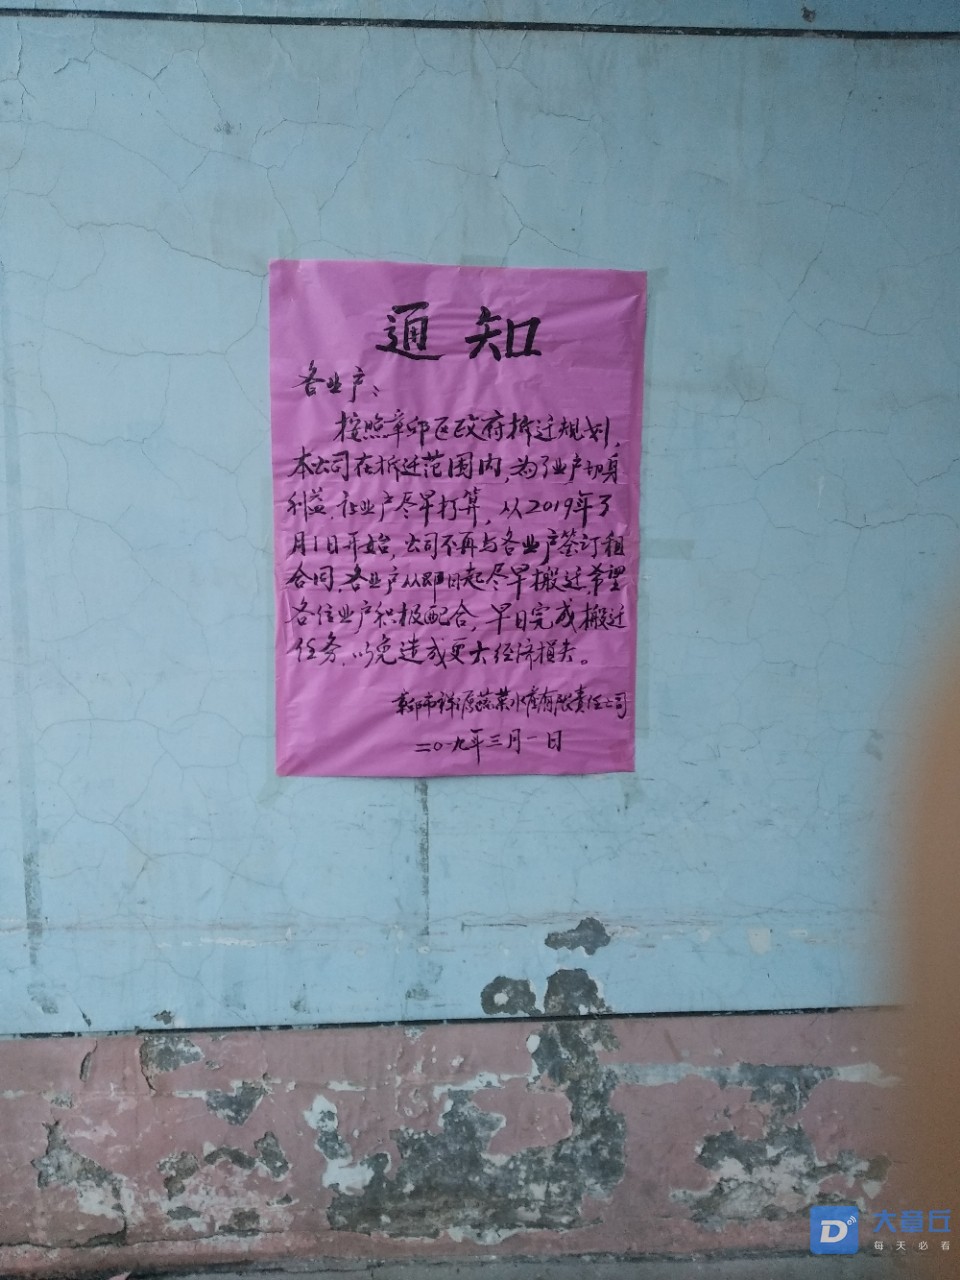 通知
各业户：
按照章邱区政府拆迁规划，
本公司在拆迁范围内，为了业户切身
利益，让业户尽早打算，从2019年3
月1日开始，公司不再与各业户签订租
合同，各业户从即日起尽早搬迁，希望
各位业户积极配合，早日完成搬迁
任务，以免造成更大经济损失。
章邱市祥源蔬菜水产有限责任公司
二〇一九年三月一日
大章丘
每天必看